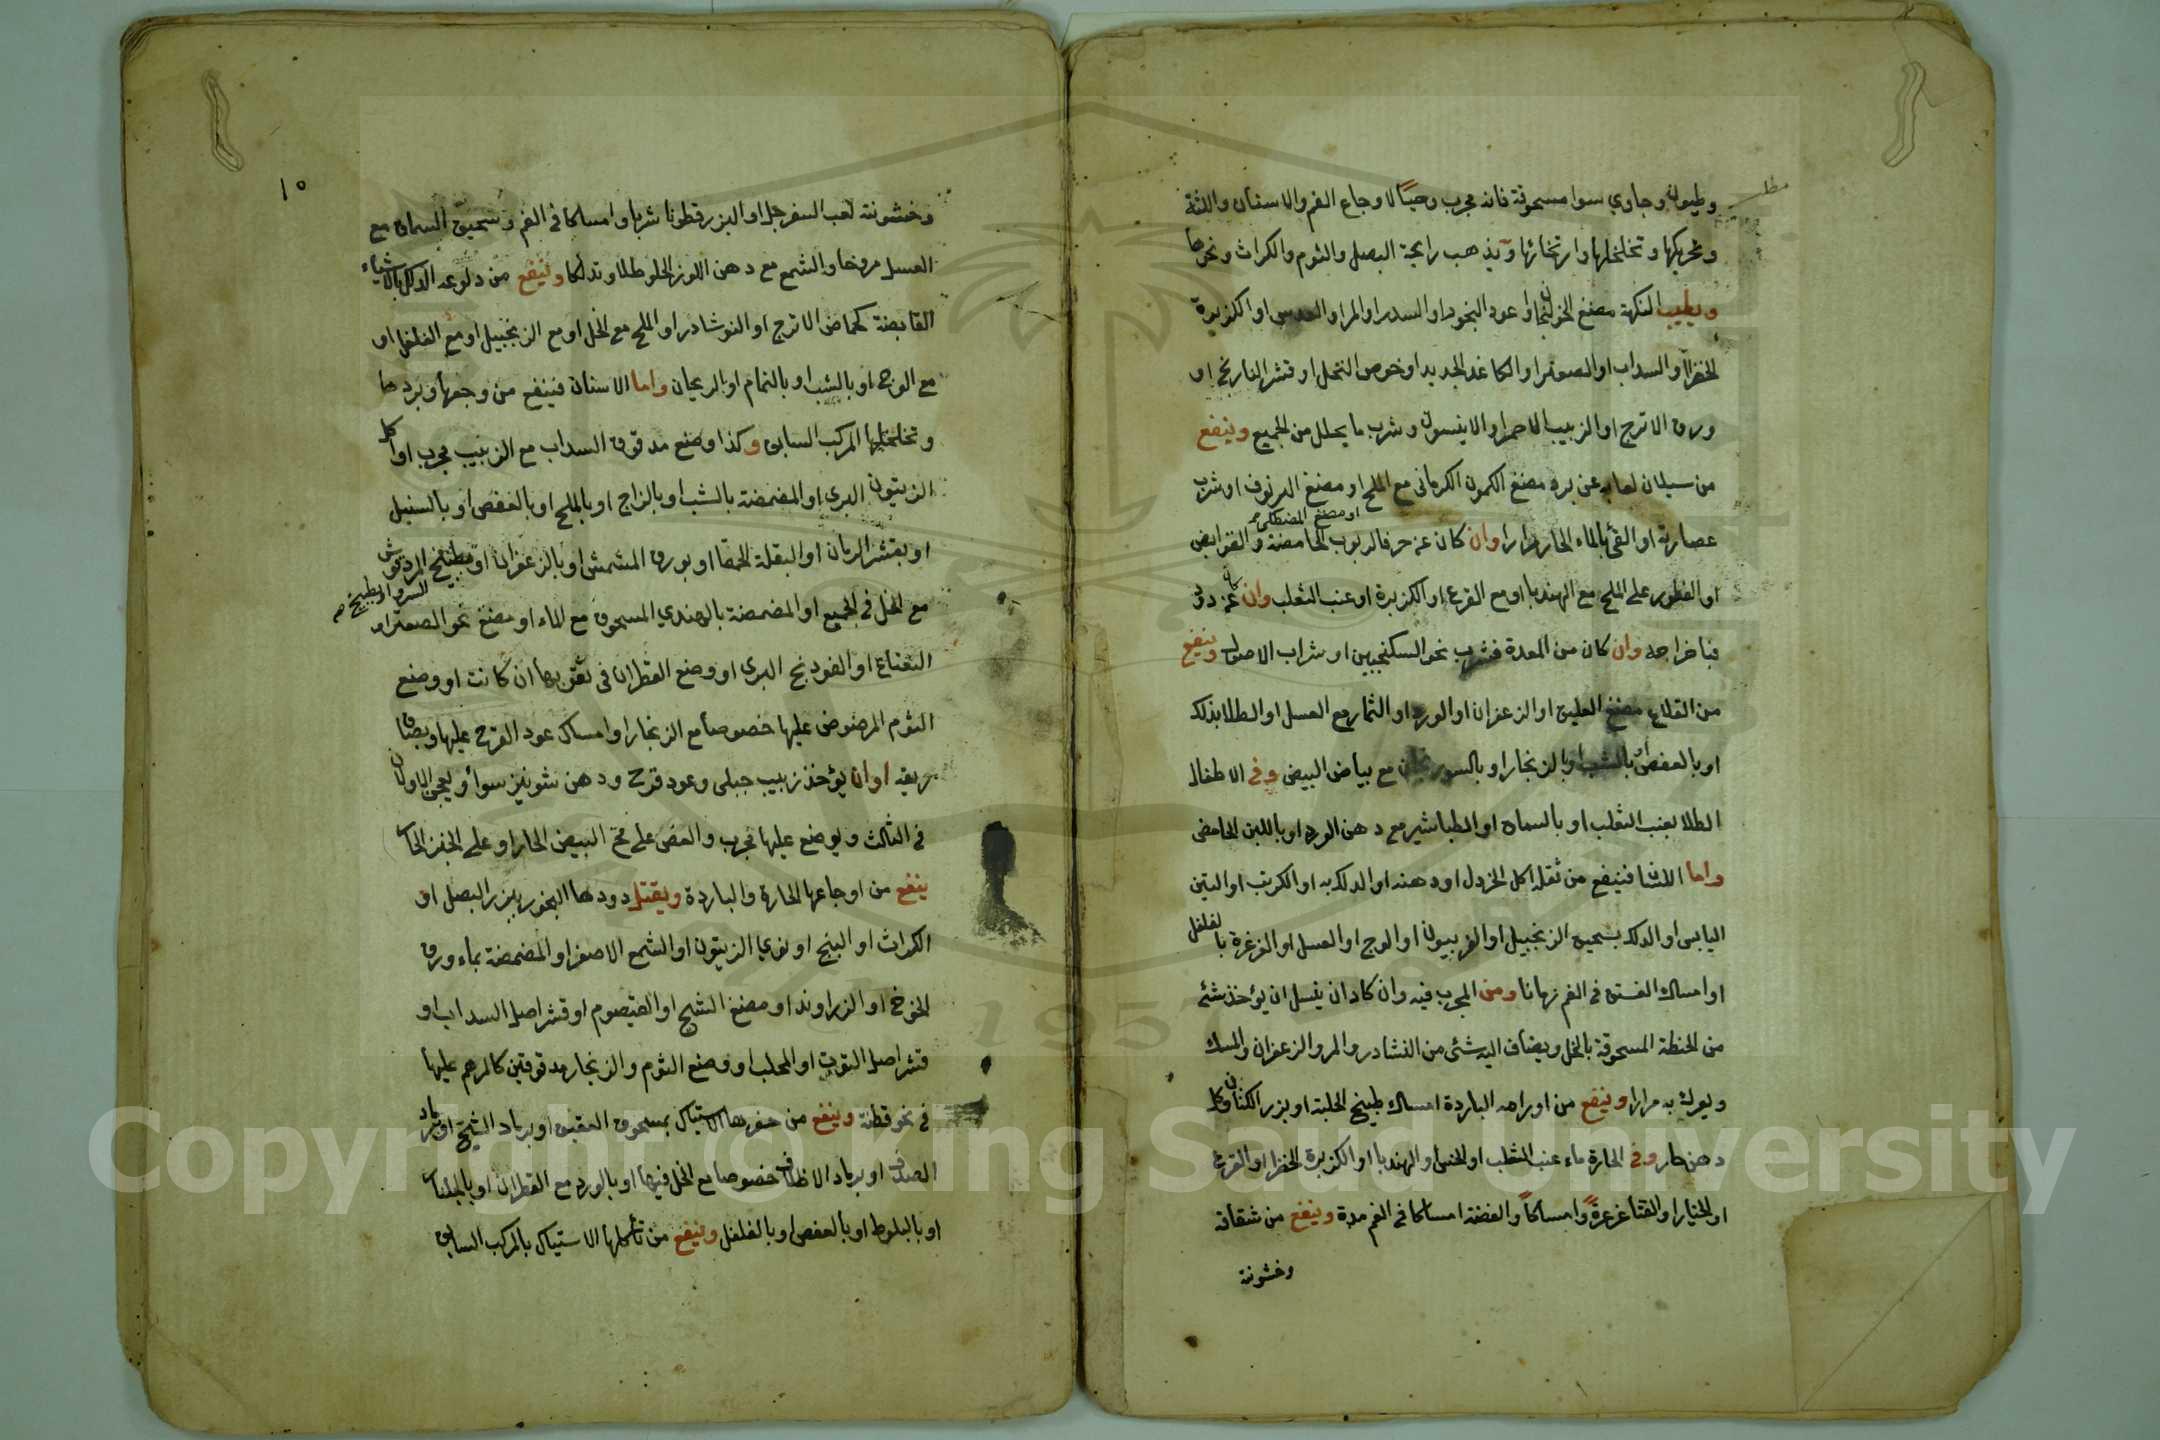 وطيون وجاوي سوا مسحوقة فانه مجرب وحيًا لاوجاع الفم والاسنان واللثة
وتحريكها وتخلخلها وارتخائها ويذهب رايحة البصل والثوم والكراث ونحوها
ويطيب النكهة مضغ الخولنجان او عود البخور او السدر او المر او العدس او الكزبرة
الخضرا او السداب او الصعتر او الكاغد الجديد او خوص النخل او قشر النارنج او
ورق الاترج او الزبيب الاحمر او الانيسون وشرب ما يحلل من الجميع وينفع
من سيلان لعابه عن برد مضغ الكمون الكرماني مع الملح او مضغ البرنوف او شرب
او مضغ المصطكى صح
عصارته او القئ بالماء الحار مرارا وان كان عن حر فالربوب الحامضة والقوابض
او الفطور على الملح مع الهندبا او مع القرع او الكزبرة او عنب الثعلب وان كان عن دود
فباخراجه وان كان من المعدة فشرب نحو السكنجبين او شراب الاصول وينفع
من القلاع مضغ العليق او الزعفران او الورد او الثمار مع العسل او الطلا بذلك
او بالعفص او بالشب او بالزنجار او بالسورنجان مع بياض البيض وفي الاطفال
الطلا بعنب الثعلب او بالسماق او الطباشير مع دهن الورد او باللبن الحامض
واما اللسان فينفع من ثقله اكل الخردل او دهنه او الدلك به او الكرنب او التين
اليابس او الدلك بسحيق الزنجبيل او الفربيون او الوج او العسل او الغرغرة بالفلفل
او امساك الفستق في الفم زمانا ومن المجرب فيه وان كاد ان يفسل ان يؤخذ شئ
من الحنطة المسحوقة بالخل ويضاف اليه شئ من النشادر والمر والزعفران والمسك
ويعرك به مرارا وينفع من اورامه الباردة امساك طبيخ الحلبة او بزر الكتان وكل
دهن حار وفي الحارة ماء عنب الثعلب او الخس او الهندبا او الكزبرة الخضرا او القرع
او الخيار او القثا غرغرةً وامساكًا والفضة امساكا في الفم مدة وينفع من شقاقه
وخشونة
مطلب
١٥
وخشونته لعب السفرجل او البزر قطونا شربا وامساكا في الفم وسحيق السماق مع
العسل مروخا والشمع مع دهن اللوز الحلو طلا وتدلكا وينفع من دلوعه الدلك بالاشياء
القابضة كحماض الاترج او النوشادر او الملح مع الخل او مع الزنجبيل او مع الفلفل او
مع الوج او بالشب او بالنمام او الريحان واما الاسنان فينفع من وجعها وبردها
وتخلخلها المركب السابق وكذا وضع مدقوق السداب مع الزبيب مجرب او اكل
الزيتون البري او المضمضة بالشب او بالزاج او بالملح او بالعفص او بالسنبل
او بقشر الرمان او البقلة الحمقا او بورق المشمش او بالزعفران او بطبيخ المردقوش
السرو او بطبيخ صح
مع الخل في الجميع او المضمضة بالهندي المسحوق مع الماء او مضغ نحو الصعتر او
النعناع او الفودنج البري او وضع القطران في ثقوبها ان كانت او وضع
الثوم المرضوض عليها خصوصا مع الزنجار او امساك عود القرح عليها وبصاق
ريقه او ان يؤخذ زبيب جبلي وعود قرح ودهن شونيز سوأ ويعجن الاولان
في الثالث ويوضع عليها مجرب والعض على مح البيض الحار او على الخبز الحار
ينفع من اوجاعها الحارة والباردة ويقتل دودها البخور ببزر البصل او
الكراث او البنج او نوي الزيتون او الشمع الاصفر او المضمضة بماء ورق
الخوخ او الزراوند او مضغ الشيح او القيصوم او قشر اصل السداب او
قشر اصل التوت او المحلب او وضع الثوم والزنجار مدقوقين كالمرهم عليها
في نحو قطنة وينفع من حفرها الاستياك بمسحوق العقيق او برماد الشيح او رماد
الصدف او برماد الاظلاف خصوصا مع الخل فيها او بالورد مع القطران او بالجلنار
او بالبلوط او بالعفص او بالفلفل وينفع من تأكلها الاستياك بالمركب السابق
Copyright © King Saud University
1957